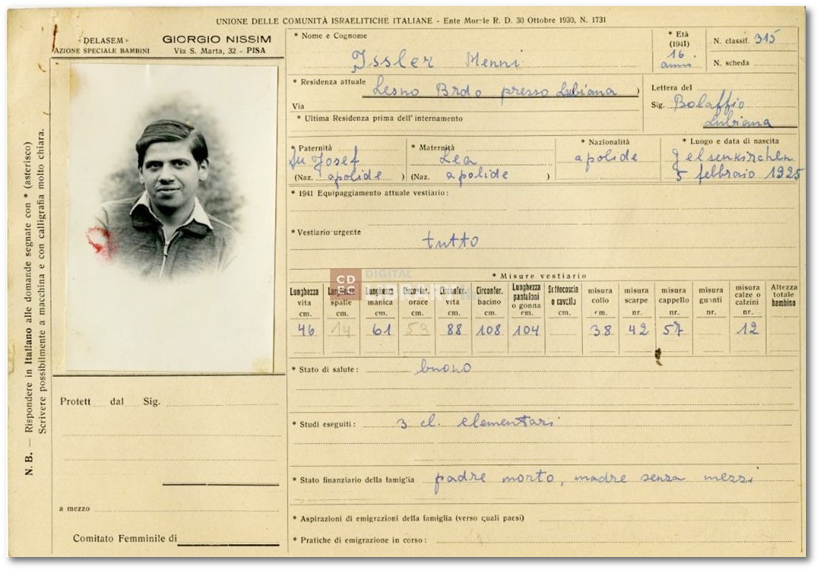 UNIONE DELLE COMUNITÀ ISRAELITICHE ITALIANE - Ente Morale R. D. 30 Ottobre 1930, N. 1731
"DELASEM" GIORGIO NISSIM
AZIONE SPECIALE BAMBINI Via S. Marta, 32 - PISA
N. B. — Rispondere in Italiano alle domande segnate con * (asterisco)
Scrivere possibilmente a macchina e con calligrafia molto chiara.
* Nome e Cognome
Issler Menni
* Età (1941)
16 anni
N. classif. 315
N. scheda
* Residenza attuale Lesno Brdo presso Lubiana
Via
* Ultima Residenza prima dell'internamento
Lettera del
Sig. Bolaffio
Lubiana
* Paternità
fu Josef
(Naz. apolide )
* Maternità
Lea
(Naz. apolide )
* Nazionalità
apolide
* Luogo e data di nascita
Gelsenkirchen
5 febbraio 1925
* 1941 Equipaggiamento attuale vestiario:
* Vestiario urgente
tutto
CD
EC
DIGITAL
* Misure vestiario
Lunghezza vita cm. 46
Lunghezza spalle cm. 14
Lunghezza manica cm. 61
Circonfer. torace cm.
Circonfer. vita cm. 88
Circonfer. bacino cm. 108
Lunghezza pantaloni o gonna cm. 104
Sottocoscia o cavallo cm.
misura collo cm. 38
misura scarpe nr. 42
misura cappello nr. 57
misura guanti nr.
misura calze o calzini nr. 12
Altezza totale bambino
* Stato di salute: buono
* Studi eseguiti: 3 cl. elementari
* Stato finanziario della famiglia padre morto, madre senza mezzi
* Aspirazioni di emigrazioni della famiglia (verso quali paesi)
* Pratiche di emigrazione in corso:
Protett dal Sig.
a mezzo
Comitato Femminile di